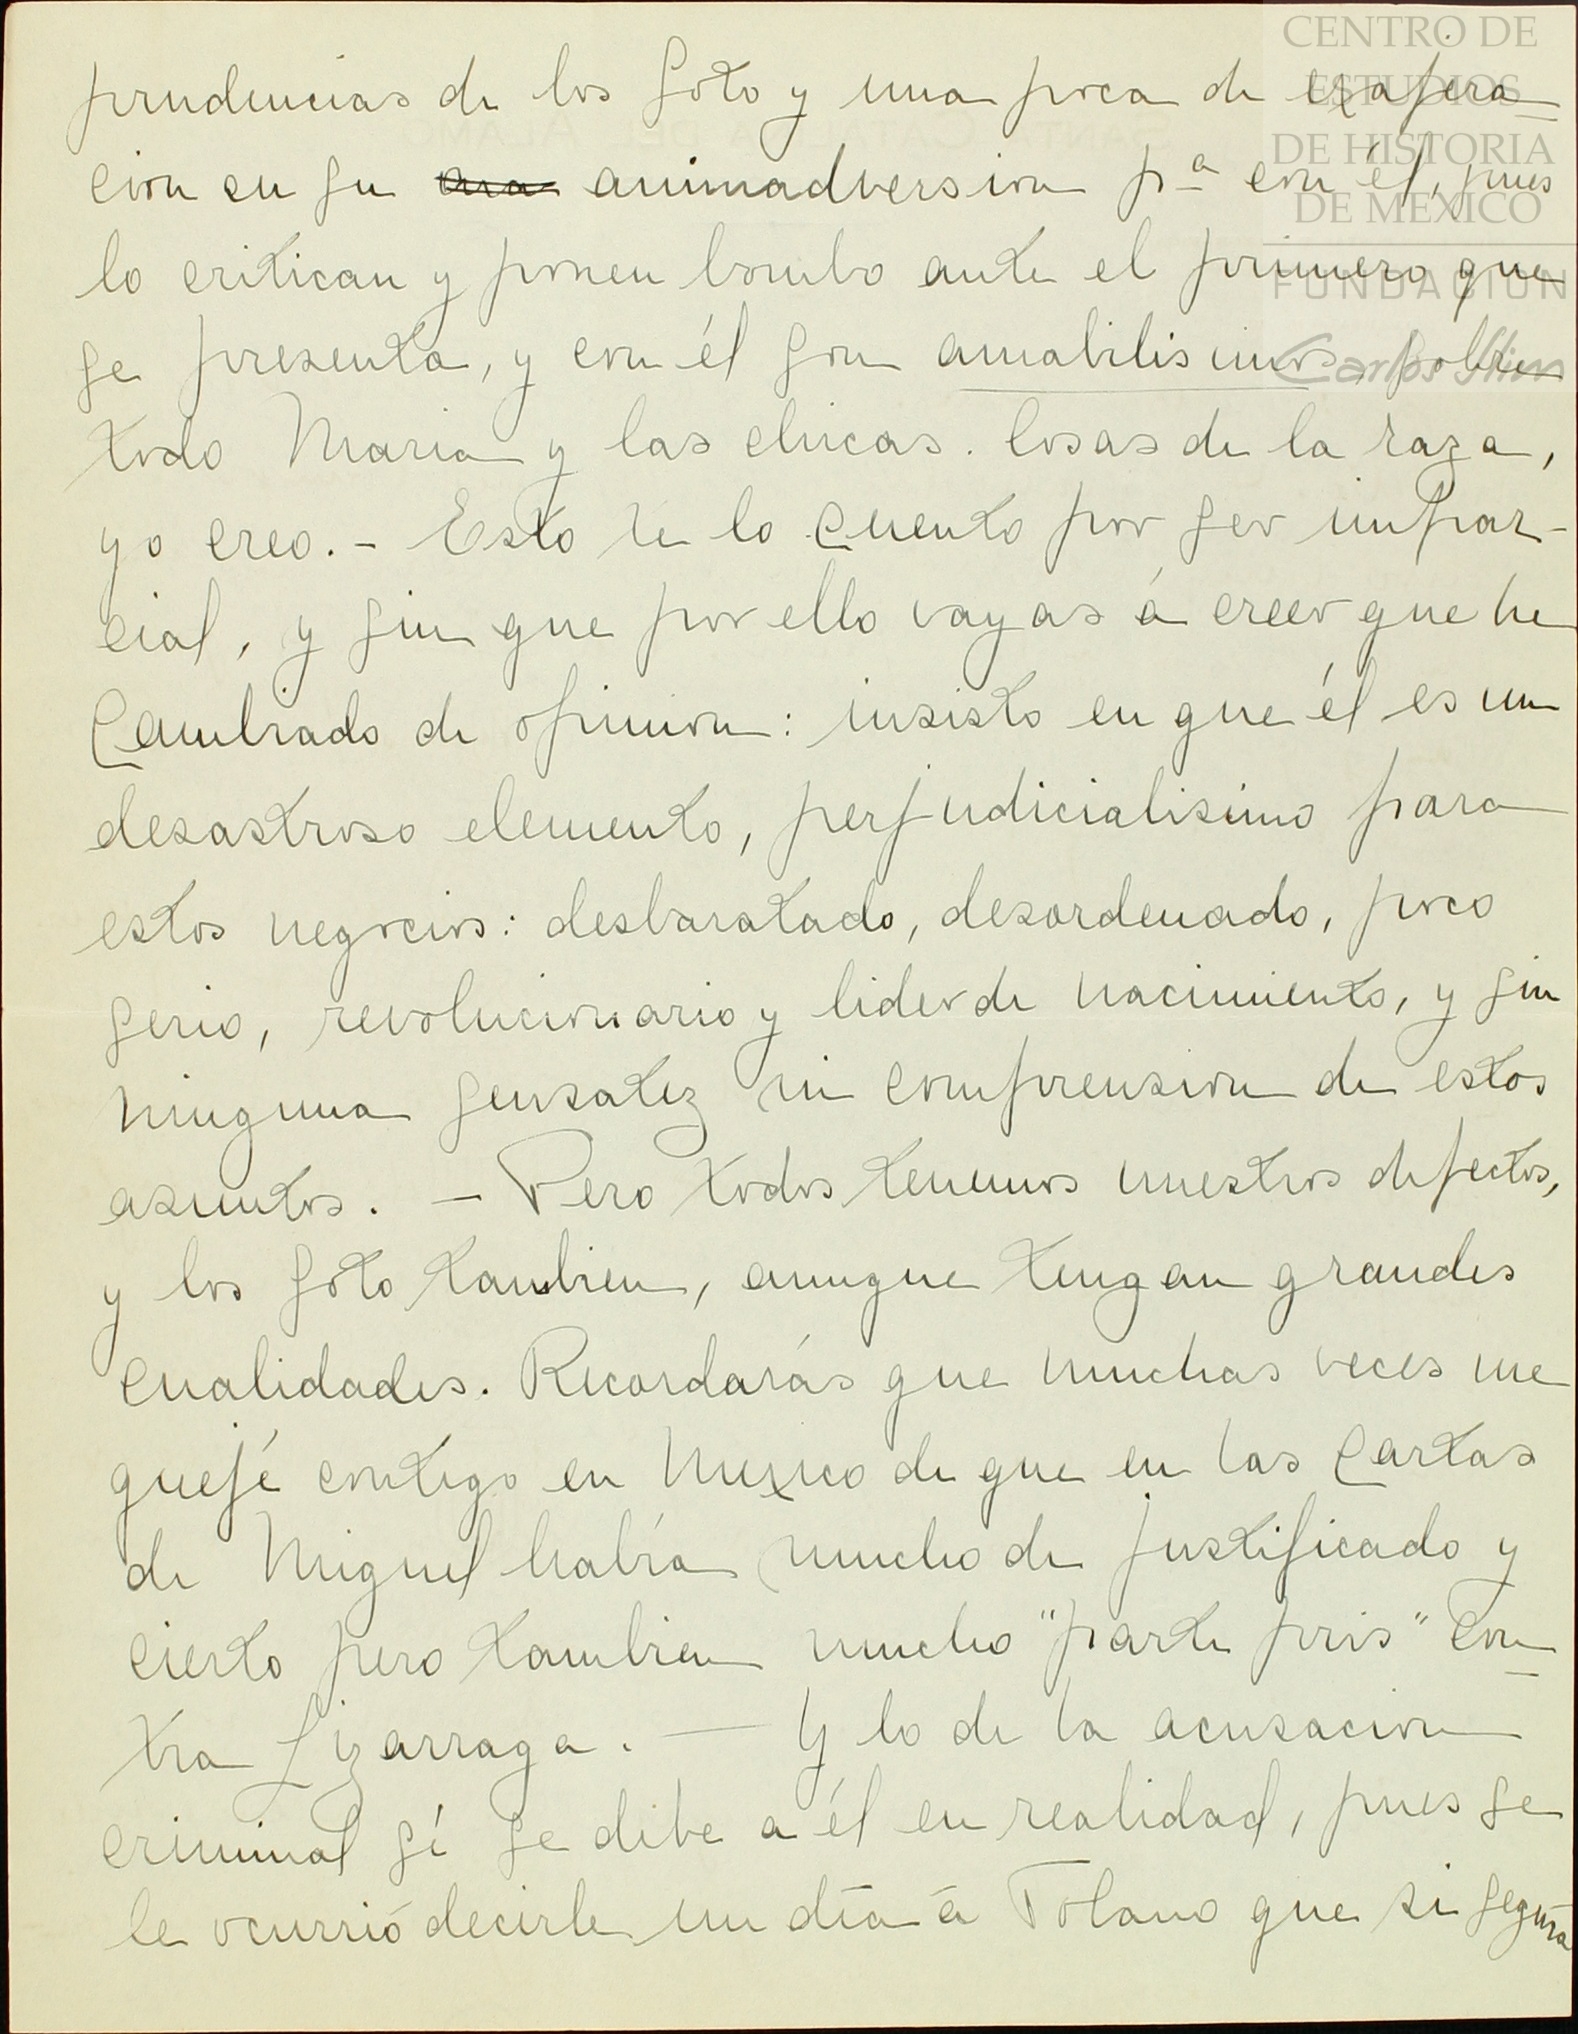 prudencias de los Soto y una poca de exajera-
cion en su ana animadversion pª con él, pues
lo critican y ponen bombo ante el primero que
se presenta, y con él son amabilisimos, sobre
todo Maria y las chicas. Cosas de la raza,
yo creo. - Esto te lo cuento por ser impar-
cial, y sin que por ello vayas á creer que he
cambiado de opinion: insisto en que él es un
desastroso elemento, perjudicialisimo para
estos negocios: desbaratado, desordenado, poco
serio, revolucionario y lider de nacimiento, y sin
ninguna sensatez ni comprension de estos
asuntos. - Pero todos tenemos nuestros defectos,
y los Soto tambien, aunque tengan grandes
cualidades. Recordarás que muchas veces me
quejé contigo en Mexico de que en las cartas
de Miguel había mucho de justificado y
cierto pero tambien mucho "parte pris" con-
tra Lizarraga. - Y lo de la acusacion
criminal sí se debe a él en realidad, pues se
le ocurrió decirle un día á Tolano que si seguía
CENTRO DE
ESTUDIOS
DE HISTORIA
DE MEXICO
FUNDACION
Carlos Slim